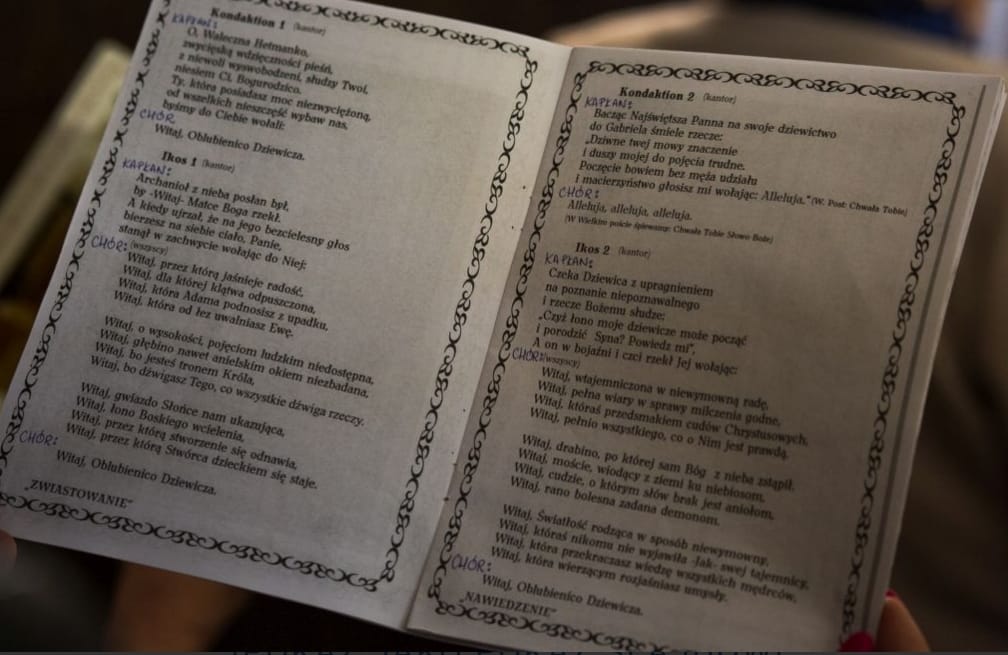 Kondaktion 1 (kantor)
KAPŁAN:
O, Waleczna Hetmanko,
zwycięską wdzięczności pieśń,
z niewoli wyswobodzeni, słudzy Twoi,
niesiem Ci, Bogurodzico.
Ty, która posiadasz moc niezwyciężoną,
od wszelkich nieszczęść wybaw nas,
byśmy do Ciebie wołali:
CHÓR
Witaj, Oblubienico Dziewicza.
Ikos 1 (kantor)
KAPŁAN:
Archanioł z nieba posłan był,
by -Witaj- Matce Boga rzekł.
A kiedy ujrzał, że na jego bezcielesny głos
bierzesz na siebie ciało, Panie,
stanął w zachwycie wołając do Niej:
CHÓR: (wszyscy)
Witaj, przez którą jaśnieje radość,
Witaj, dla której klątwa odpuszczona,
Witaj, która Adama podnosisz z upadku,
Witaj, która od łez uwalniasz Ewę.
Witaj, o wysokości, pojęciom ludzkim niedostępna,
Witaj, głębino nawet anielskim okiem niezbadana,
Witaj, bo jesteś tronem Króla,
Witaj, bo dźwigasz Tego, co wszystkie dźwiga rzeczy.
Witaj, gwiazdo Słońce nam ukazująca,
Witaj, łono Boskiego wcielenia,
Witaj, przez którą stworzenie się odnawia,
Witaj, przez którą Stwórca dzieckiem się staje.
CHÓR:
Witaj, Oblubienico Dziewicza.
„ZWIASTOWANIE”
Kondaktion 2 (kantor)
KAPŁAN:
Bacząc Najświętsza Panna na swoje dziewictwo
do Gabriela śmiele rzecze:
„Dziwne twej mowy znaczenie
i duszy mojej do pojęcia trudne.
Poczęcie bowiem bez męża udziału
i macierzyństwo głosisz mi wołając: Alleluja.” (W. Post: Chwała Tobie)
CHÓR:
Alleluja, alleluja, alleluja.
(W Wielkim poście śpiewamy: Chwała Tobie Słowo Boże)
Ikos 2 (kantor)
KAPŁAN:
Czeka Dziewica z upragnieniem
na poznanie niepoznawalnego
i rzecze Bożemu słudze:
„Czyż łono moje dziewicze może począć
i porodzić Syna? Powiedz mi”,
A on w bojaźni i czci rzekł Jej wołając:
CHÓR: (wszyscy)
Witaj, wtajemniczona w niewymowną radę,
Witaj, pełna wiary w sprawy milczenia godne,
Witaj, któraś przedsmakiem cudów Chrystusowych,
Witaj, pełnio wszystkiego, co o Nim jest prawdą.
Witaj, drabino, po której sam Bóg z nieba zstąpił,
Witaj, moście, wiodący z ziemi ku niebiosom,
Witaj, cudzie, o którym słów brak jest aniołom,
Witaj, rano bolesna zadana demonom.
Witaj, Światłość rodząca w sposób niewymowny,
Witaj, któraś nikomu nie wyjawiła -Jak- swej tajemnicy,
Witaj, która przekraczasz wiedzę wszystkich mędrców,
Witaj, która wierzącym rozjaśniasz umysły.
CHÓR:
Witaj, Oblubienico Dziewicza.
„NAWIEDZENIE”